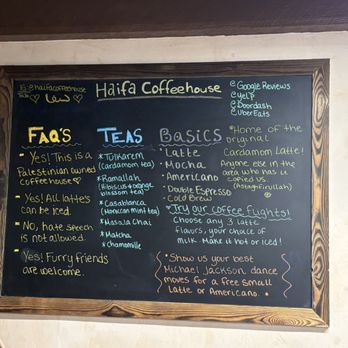 IG: @haifacoffeehouse
Haifa Coffeehouse
@ Google Reviews
@ yelp
@ Doordash
@ UberEats
FAQ'S
- Yes! This is a
Palestinian owned
coffeehouse ♡
- Yes! All latte's
can be iced.
- NO, hate speech
is not allowed.
- Yes! Furry friends
are welcome.
TEAS
* Tulkarem
(Cardamom tea)
* Ramallah
(Hibiscus & orange
blossom tea)
* Casablanca
(Moroccan mint tea)
* Masala Chai
* Matcha
* Chamomile
Basics
• Latte
• Mocha
• Americano
• Double Espresso
• Cold Brew
*Home of the
original
Cardamom Latte!
Anyone else in the
area who has us
copied us
(Astaghfirullah)
* Try our coffee flights!
Choose any 3 latte
flavors, your choice of
milk. Make it hot or iced!
*Show us your best
Michael Jackson dance
moves for a free small
Latte or Americano. *